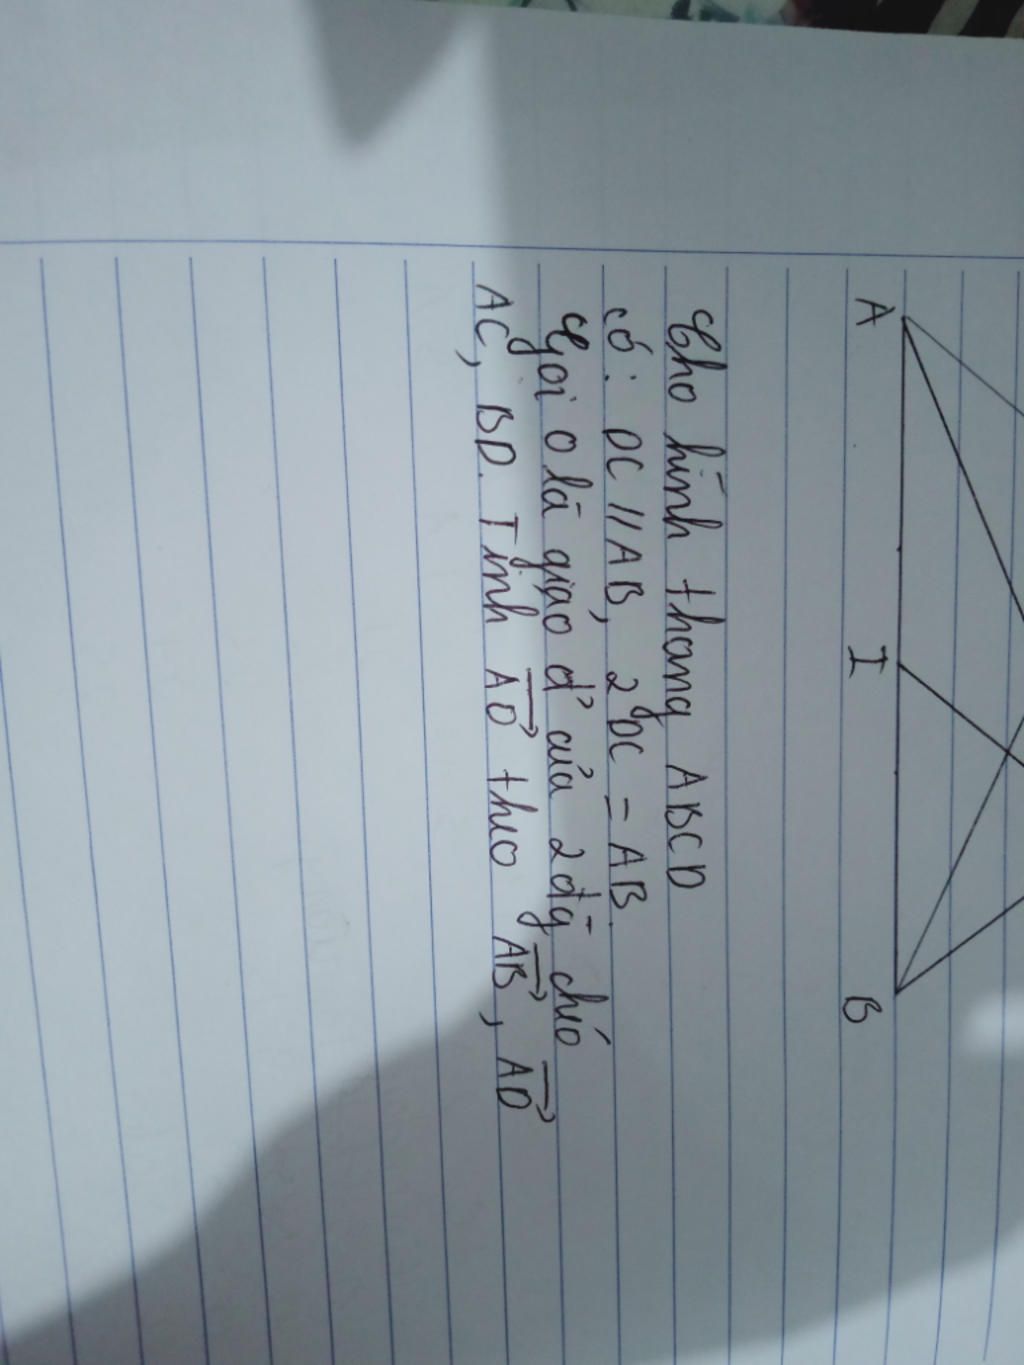 A I B
Cho hình thang ABCD
có: DC // AB, 2DC = AB.
Gọi O là giao đ' của 2 đg- chéo
AC, BD. Tính AO theo AB, AD